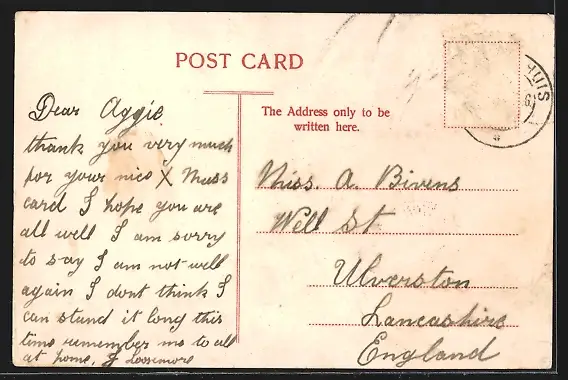 POST CARD
HUIS
The Address only to be
written here.
Dear Aggie
thank you very much
for your nice X Mass
card I hope you are
all well I am sorry
to say I am not well
again I dont think I
can stand it long this
time remember me to all
at home, J Loosemore
Miss A. Bivens
Well St
Ulverston
Lancashire
England